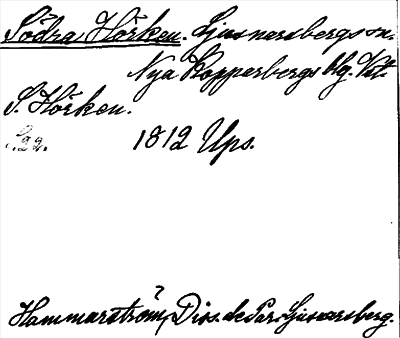 Södra Hörken. Ljusnarsbergs sn.
Nya Kopparbergs blg. Vstm.
S. Hörken.
1812 Ups.
Hammarström, Diss. de Par. Ljusnarsberg.